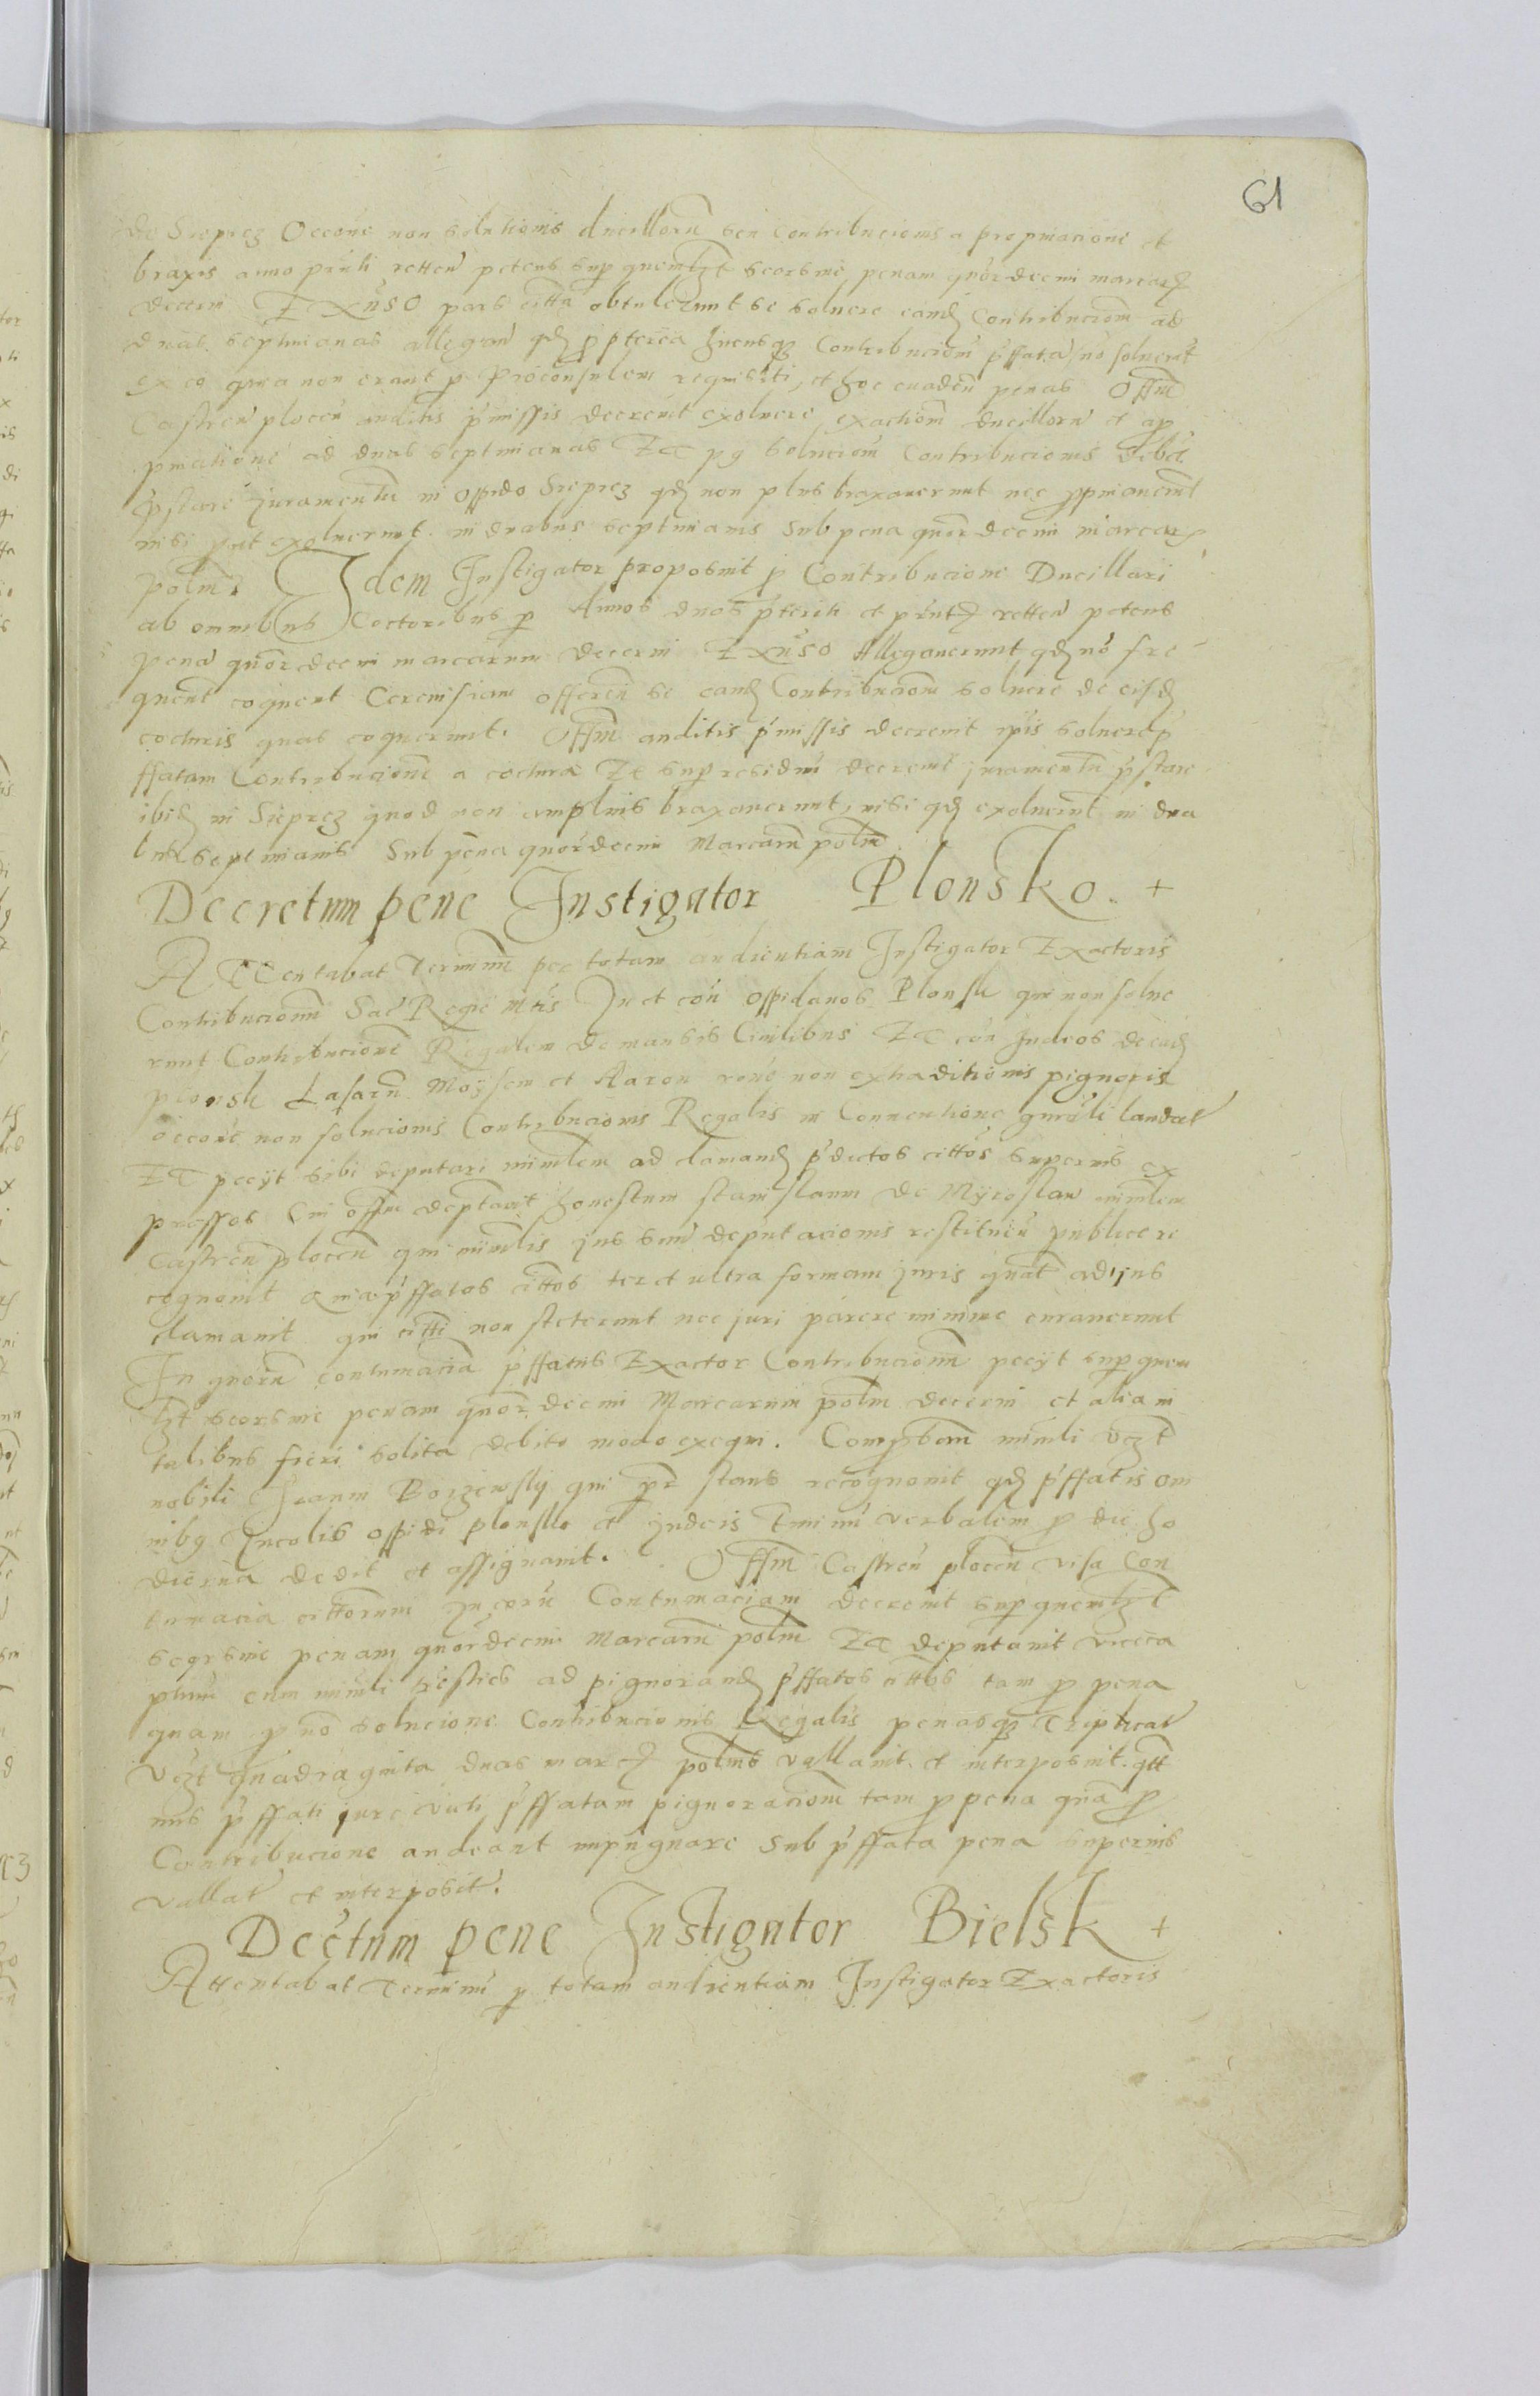 61
de Sieprcz Occone non solutionis ducillorū seu Contribucionis a propinacione et
braxis anno pñti retten petens sup quemlzt seorsive penam quordecim marcarꝝ
decerni Exuso pars citta obtulerunt se solvere eandꝫ Contribucionem ad
duas septimanas allegan qdꝫ p̱pterea hucusqꝫ Contribucionem p̄ffatā nō solverūt
ex eo quia non erant p̱ Proconsulem requisiti, et hoc evaden penas Offm̄
Castren̄ plocen̄ auditis p̄missis decrevit exolvere exactionem ducillorū et a p̱
pinatione ad duas septimanas Et p9 solucionem Contribucionis debet
p̄stare juramentū in oppido Sieprcz qdꝫ non plus braxaverunt nec p̱pinaverūt
nisi put exolverunt in duabus septimanis sub pena quordecim marcarꝝ
polm̄. Idem Instigator proposuit p̱ Contribucione Ducillari
ab omnibus Coctoribus p̱ Annos duos p̄teriti et p̄ntꝫ retten petens
penā quordecim marcarum decerni Exuso Allegaverunt qdꝫ nō fre
quent coquent Cerevisiam offeren̄ se eandꝫ Contribucionem solvere de eisdꝫ
cocturis quas coquerunt. Offm̄ auditis p̄missis decrevit ipis solvere p̄
ffatam Contribucionē a coctura Et sup residuū decrevit juramentū p̄stare
ibidꝫ in Sieprcz quod non amplius braxaverunt, nisi qdꝫ exolverūt in dua
bus septimanis sub pena quordecim Marcarū polm̄.
Decretum pene Instigator Plonsko. +
Attentabat Terminū per totam audientiam Instigator Exactoris
Contribucionū Sac̄ Regie Mtis In et con̄ oppidanos Plonsk qui non solve
runt Contribucionē Regalem de mansis Civilibus Et con̄ Judeos de eadꝫ
Plonsk Lasarū Moÿsem et Aaron rone non extraditionis pignoris
occone non solucionis Contribucionis Regalis in Conventione gnrāli laudat̄
Et peciit sibi deputari minrlem ad clamandꝫ p̄dictos cittos superius ex
pressos Cui offm̄ deputavit honestum Stanislaum de Mÿroslaw minrlem
Castren̄ plocen̄ qui minrlis jus sui deputacionis restituen̄ publice re
cognovit quia p̄ffatos cittos ter et ultra formam juris quat ad jus
clamavit qui citti non steterunt nec juri parere minime curaverunt
In quorū contumaciā p̄ffatus Exactor Contribucionū peciit sup quem
lzt seorsive penam quordecim Marcarum polm̄ decerni et alia in
talibus fieri solita debito modo exequi. Comprobam minrli vczt
nobili Joanni Borzewskÿ qui pr̄ stans recognovit qdꝫ p̄ffatis om
nibꝯ Incolis oppidi Plonsko et Judeis Tminū verbalem p̱ die ho
dierna dedit et assignavit. Offm̄ Castren̄ plocen̄ visa Con
tumacia cittorum In eorū Contumaciam decrevit sup quemlzt
seorsive penam quordecim Marcarū polm̄ Et deputavit viceca
pitaneū cum minrli trestres ad pignorandꝫ p̄ffatos cittos tam p̱ pena
quam p̱ nō solucione Contribucionis Regalis penasqꝫ triplicat̄
vczt quadraginta duas marcꝫ polm̄s vallavit et interposuit. qtt
nus p̄ffati jure victi p̄ffatam pignoracionem tam p̱ pena quā p̱
Contribucione audeant impugnare sub p̄ffata pena superius
vallat̄ et interposit̄.
Dectum pene Instigator Bielsk +
Attentabat Terminū p̱ totam audientiam Instigator Exactoris